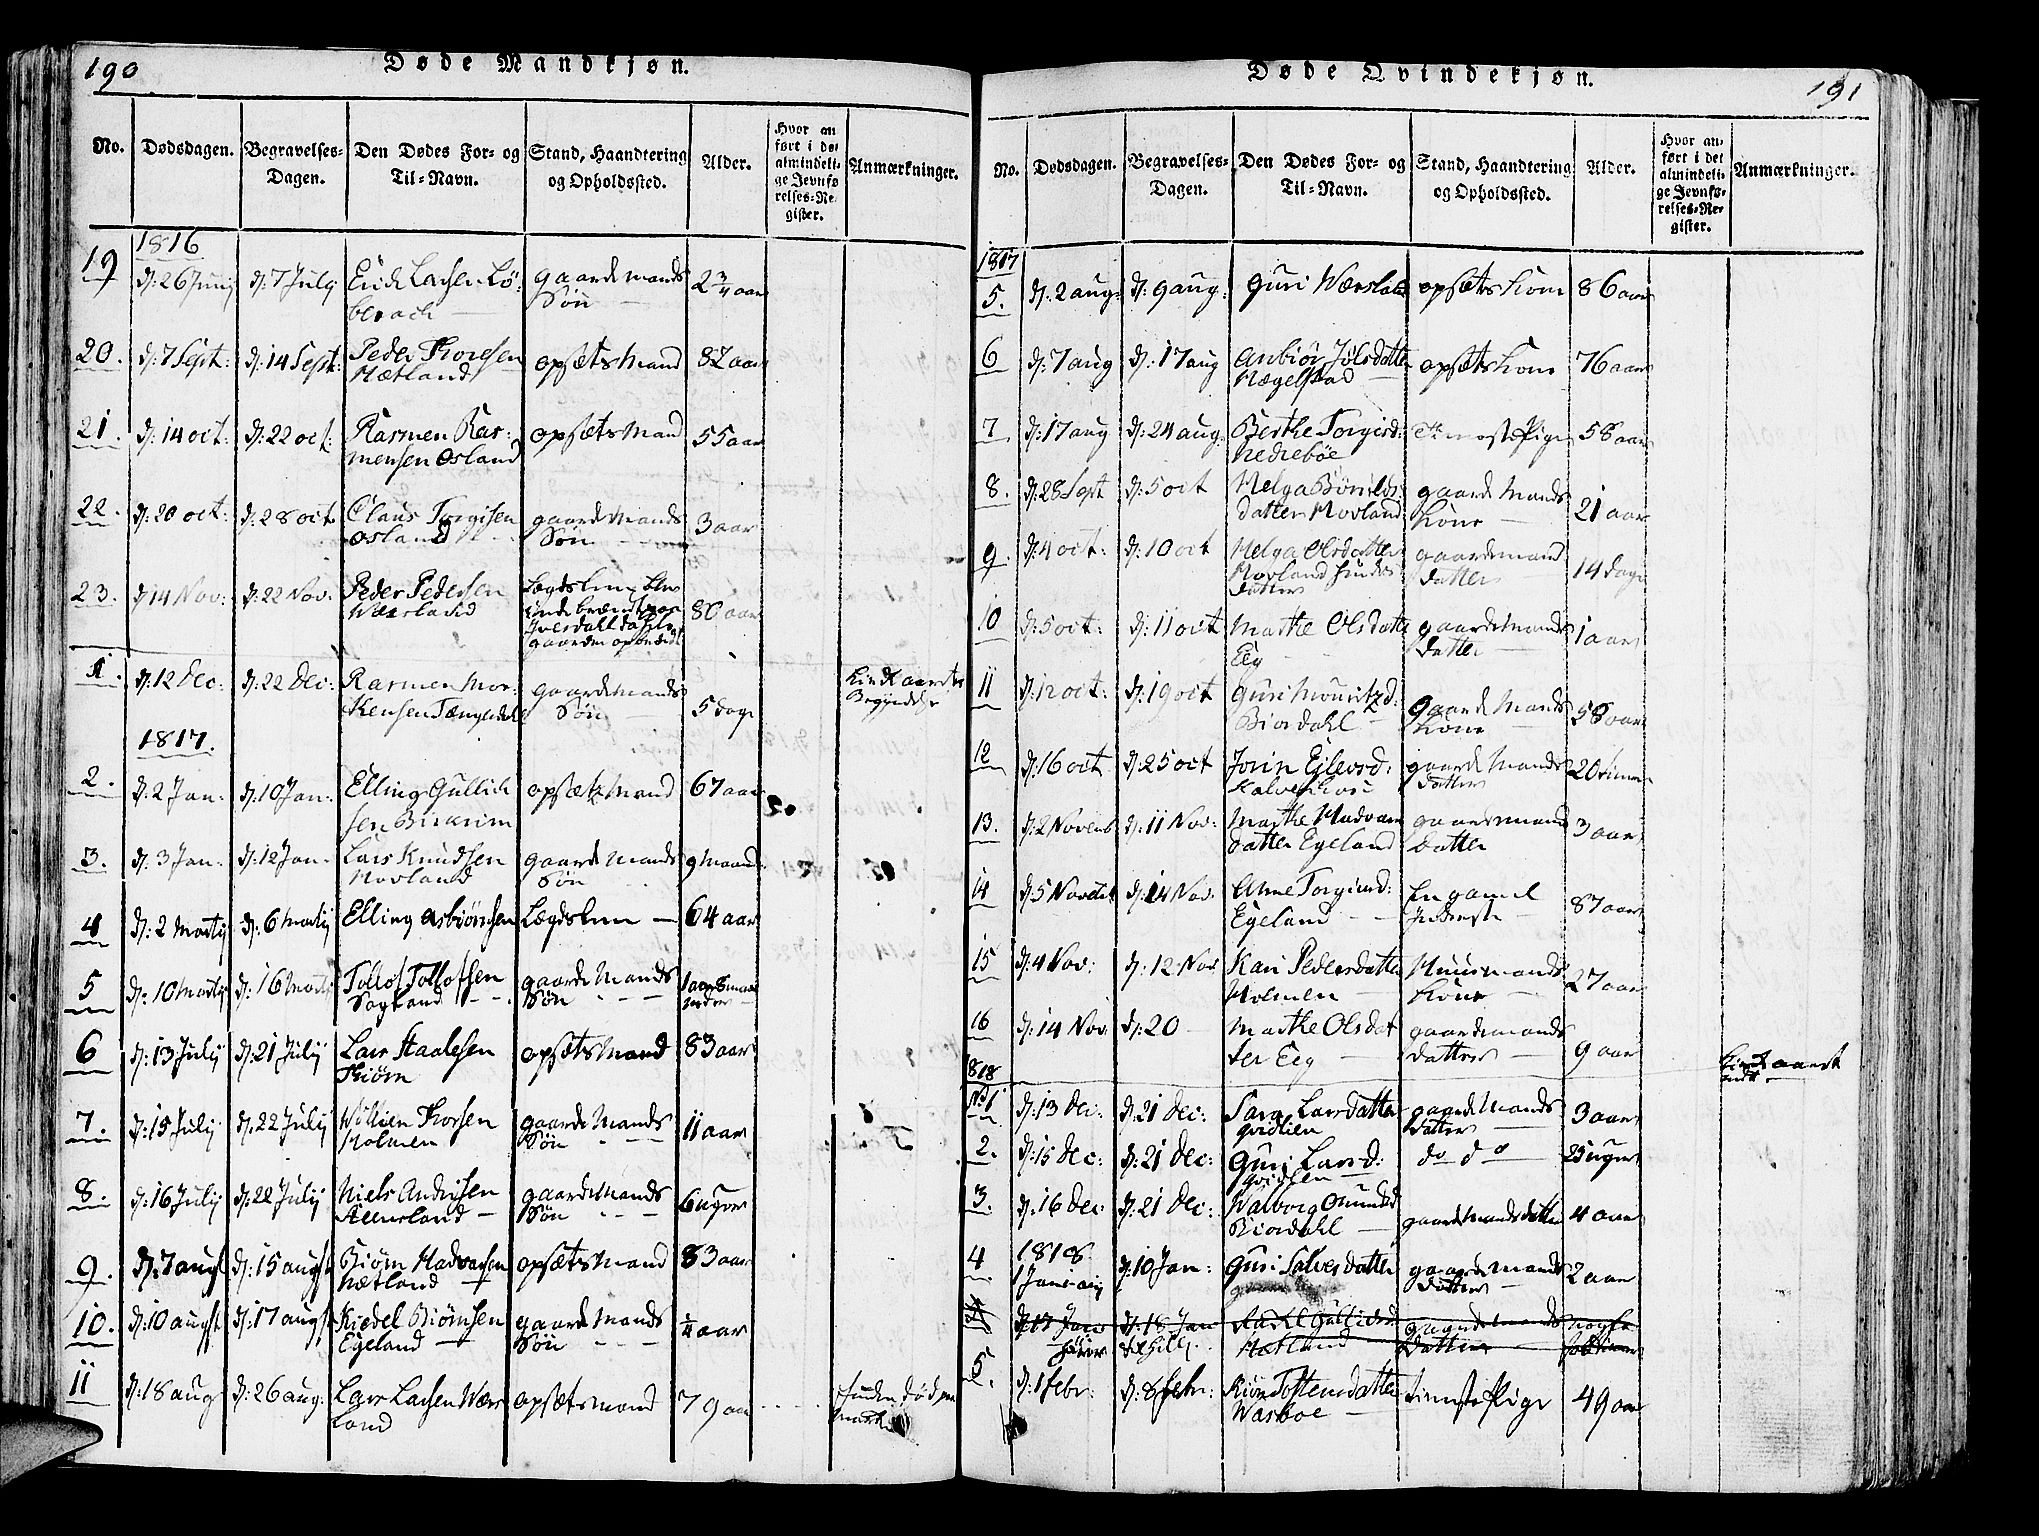 190
Døde Mandkjøn.
No. Dødsdagen. Begravelses-Dagen. Den Dødes For- og Til-Navn. Stand, Haandtering og Opholdssted. Alder. Hvor anført i det almindelige Jevnførelses-Register. Anmærkninger.
1816
19 d: 26 Junij d: 7 July Larsen gaardemands Søn 2 3/4 aar
20. d: 7 Sept: d: 14 Sept: Peder Thoresen Hætland opsætsmand 82 aar
21. d: 14 oct: d: 22 oct: Rasmen Rasmensen Osland opsætsmand 55 aar
22. d: 20 oct: d: 28 oct Claus Torgisen Osland gaardemands Søn 3 aar
23. d: 14 Nov: d: 22 Nov: Peder Pedersen Wærland Lægdslem 80 aar
1. d: 12 Dec: d: 22 Dec: Rasmen gaardemands Søn 5 dage Kirkeaarets Begyndelse
1817.
2. d: 2 Jan: d: 10 Jan: Elling Gullichsen Birkrim opsætsmand 67 aar
3. d: 3 Jan- d: 12 Jan- Lars Knudsen Hovland gaardemands Søn 9 maaned
4 d: 2 Martij d: 6 Martij Elling Asbiörnsen Lægdslem — 64 aar
5 d: 10 Martij d: 16 Martij Tollof Tollofsen gaardemands Søn 1 aar 8 maaneder
6 d: 13 July d: 21 July Lars Staalesen Kiörn opsætsmand 83 aar
7. d: 15 July d: 22 July Willien Thorsen Holmen gaardemands Søn 11 aar
8. d: 16 July d: 22 July Niels gaardemands Søn 6 uger
9. d: 7 augst d: 15 augst Biörn Hadvarsen Hætland opsætsmand 83 aar
10. d: 10 augst d: 17 augst Kiedel Biörnsen Egeland gaardemands Søn 1/4 aar
11 d: 18 aug d: 26 aug. Lars Larsen Wærsland opsætsmand 79 aar
191
Døde Qvindekjøn.
No. Dødsdagen. Begravelses-Dagen. Den Dødes For- og Til-Navn. Stand, Haandtering og Opholdssted. Alder. Hvor anført i det almindelige Jevnførelses-Register. Anmærkninger.
1817
5. d: 2 aug: d: 9 aug: Guri opsætskone 86 aar
6 d: 7 aug d: 17 aug Anbiör Jølsdatter Hægelstad opsætskone 76 aar
7 d: 17 aug d: 24 aug. Berthe Torgisd: Nedrebøe Pige 58 aar
8. d: 28 Sept d: 5 oct Helga datter Hovland gaardemands kone 21 aar
9. d: 4 oct: d: 10 oct Helga Olsdatter Hovland datter gaardemands datter 14 dage
10 d: 5 oct: d: 11 oct Marthe Olsdatter Eeg gaardemands datter 1 aar
11 d: 12 oct: d: 19 oct Guri Mouritzd: Biordahl gaardemands kone 58 aar
12 d: 16 oct d: 25 oct Jorin Ejlevsd: gaardemands datter 20
13. d: 2 Novemb d: 11 Nov: Marthe Hadvarsdatter Egeland gaardemands datter 3 aar
14 d: 5 Novemb d: 14 Nov. Anne Torgiersd: Egeland En gamel 87 aar
15 d: 4 Nov: d: 12 Nov. Kari Pedersdatter Holmen Huusmands kone 27 aar
16 d: 14 Nov. d: 20 Marthe Olsdatter Eeg gaardemands datter 9 aar
1818 Kirkeaaret
No 1 d: 13 Dec: d: 21 Dec: Sara Larsdatter Qvidlien gaardemands datter 3 aar
2. d: 15 Dec: d: 21 Dec: Guri Larsd: Qvidlien do do 25 uger
3. d: 16 Dec: d: 21 Dec: Walborg Omundsd Biordahl gaardemands datter 4 aar
1818
4 1 Januarij d: 10 Jan: Guri Salvesdatter gaardemands datter 2 aar
d: 18 Jan Gullichsd Hætland gaardemands datter
5. d: 1 febr: d: 8 febr: Tostensdatter Wasboe tienstePige 49 aar